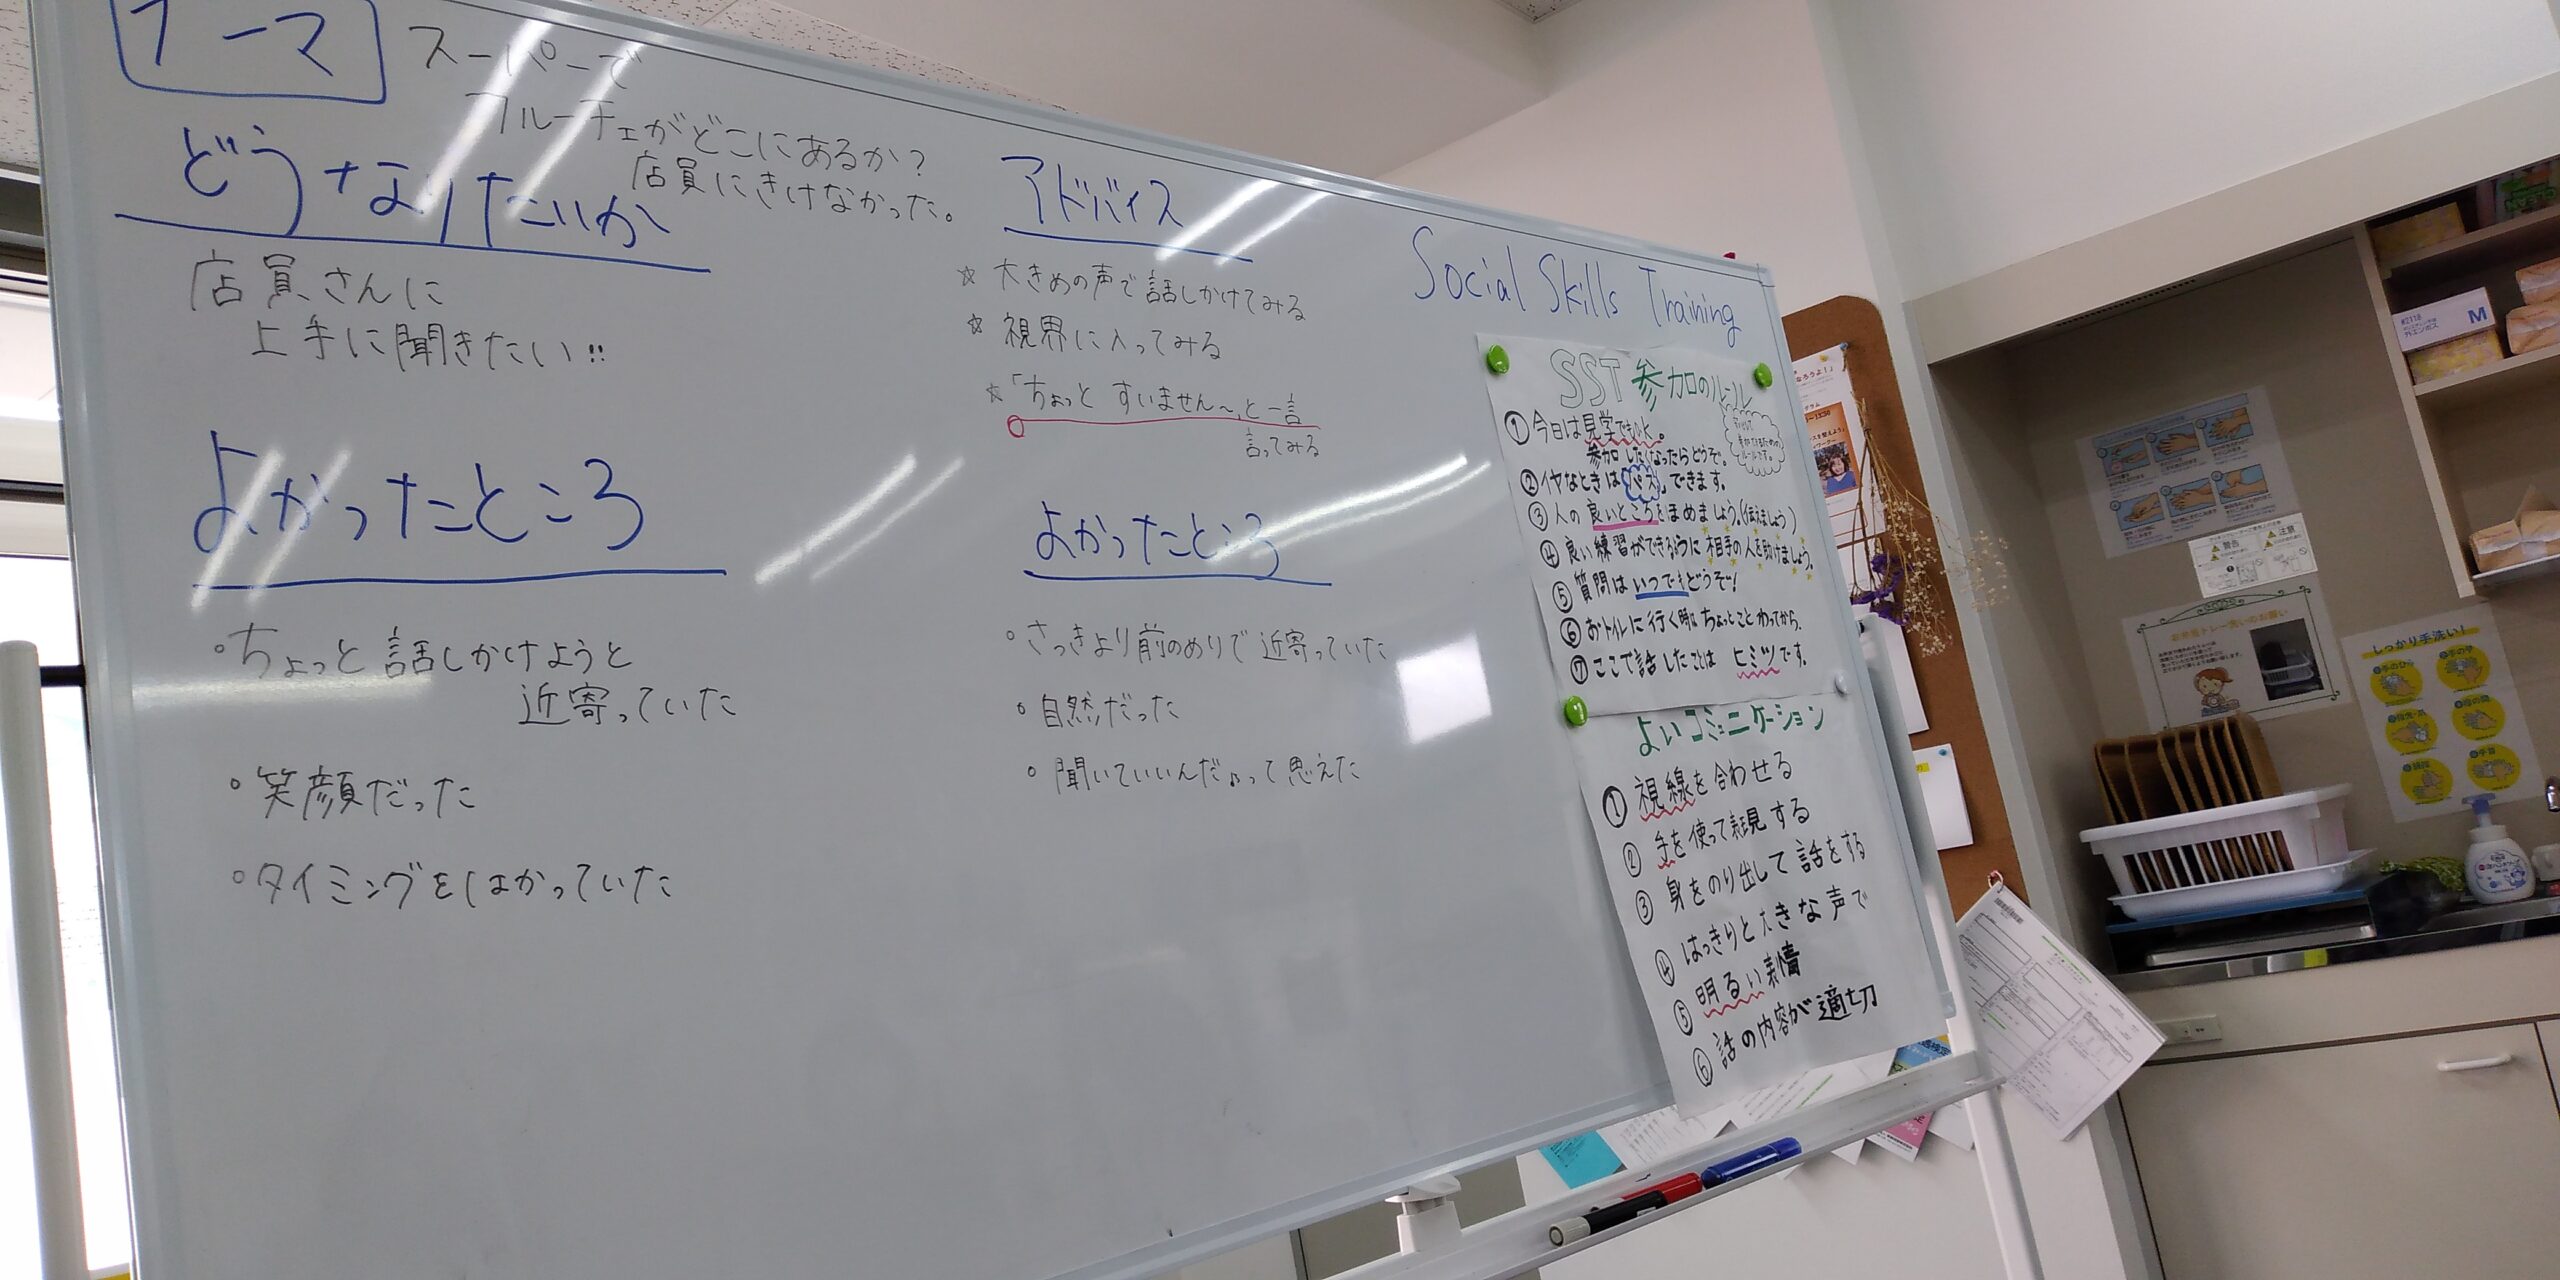 テーマ
スーパーで
フルーチェがどこにあるか?
店員にきけなかった。
どうなりたいか
店員さんに
上手に聞きたい!!
よかったところ
・ちょっと話しかけようと
近寄っていた
・笑顔だった
・タイミングをはかっていた
アドバイス
☆大きめの声で話しかけてみる
☆視界に入ってみる
☆「ちょっとすいません〜」と一言
言ってみる
よかったところ
・さっきより前のめりで近寄っていた
・自然だった
・聞いていいんだよって思えた
Social Skills Training
SST参加のルール
①今日は見学でもいいと。
参加したくなったらどうぞ。
②イヤなときは「パス」できます。
③人の良いところをほめましょう。(伝えましょう)
④良い練習ができるように相手の人を助けましょう。
⑤質問はいつでもどうぞ!
⑥おトイレに行く時はちょっとことわってから。
⑦ここで話したことはヒミツです。
よいコミュニケーション
①視線を合わせる
②手を使って表現する
③身をのり出して話をする
④はっきりと大きな声で
⑤明るい表情
⑥話の内容が適切
M
警告
注意
しっかり手洗い!